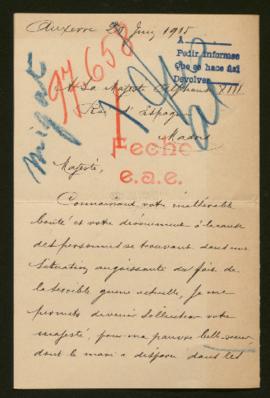 Auxerre 25 Juin 1915
A
Pedir informes
Que se hace así
Devolver
97.650
A Sa Majesté Alphonse XIII
Roi d'Espagne
Madrid
Fecho
e.a.e.
Majesté,
Connaissant votre inaltérable
bonté et votre dévouement à la cause
des personnes se trouvant dans une
situation angoissante du fait de
la terrible guerre actuelle, je me
permets de venir solliciter votre
majesté, pour ma pauvre belle-sœur
dont le mari a disparu dans les